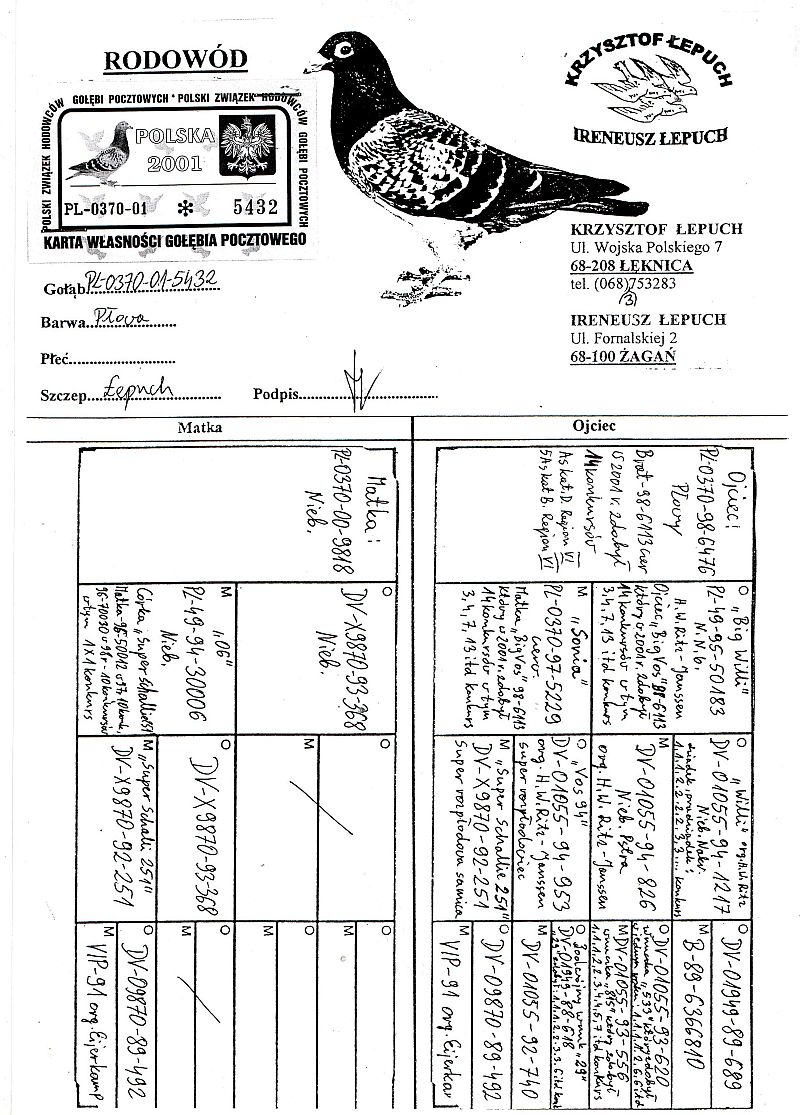 RODOWÓD
POLSKI ZWIĄZEK HODOWCÓW GOŁĘBI POCZTOWYCH * POLSKI ZWIĄZEK HODOWCÓW GOŁĘBI POCZTOWYCH
POLSKA
2001
PL-0370-01 * 5432
KARTA WŁASNOŚCI GOŁĘBIA POCZTOWEGO
KRZYSZTOF ŁEPUCH
IRENEUSZ ŁEPUCH
KRZYSZTOF ŁEPUCH
Ul. Wojska Polskiego 7
68-208 ŁĘKNICA
tel. (068)753283
(3)
IRENEUSZ ŁEPUCH
Ul. Fornalskiej 2
68-100 ŻAGAŃ
Gołąb PL-0370-01-5432
Barwa Płowa
Płeć
Szczep Łepuch
Podpis
Matka
Ojciec
Matka:
PL-0370-00-9818
Nieb.
O
DV-X9870-93-368
Nieb.
M "06"
PL-49-94-30006
Nieb.
Córka "Super Schallie 251"
O
M
O
DV-X9870-93-368
M "Super Schalli 251"
DV-X9870-92-251
O
M
O
M
O
DV-09870-89-492
M
VIP-91 org. Eijerkamp
Ojciec:
PL-0370-98-6476
Płowy
Brat-98-6113 czer
w 2001 r. zdobył
14 konkursów
As kat. D. Region VI
5 As kat B. Region VI
O "Big Willi"
PL-49-95-50183
N.N.b.
H.W. Ritz-Janssen
Ojciec "Big Vos" 98-6113
który w 2001 r. zdobył
14 konkursów w tym
3, 4, 7, 13 itd konkurs
M "Sonia"
PL-0370-97-5229
czerw.
Matka "Big Vos" 98-6113
który w 2001 r. zdobył
14 konkursów w tym
3, 4, 7, 13 itd konkurs
O "Willi" org. H.W. Ritz
DV-01055-94-1217
M
DV-01055-94-826
Nieb. Pstra
org. H.W. Ritz-Janssen
O "Vos 94"
DV-01055-94-953
org. H.W. Ritz-Janssen
super rozpłodowiec
M "Super Schallie 251"
DV-X9870-92-251
Super rozpłodowa samica
O
DV-01949-89-689
M
B-89-6366810
O
DV-01055-93-620
M DV-01055-93-556
O
DV-01949-88-618
M
DV-01055-92-740
O
DV-09870-89-492
M
VIP-91 org. Eijerka